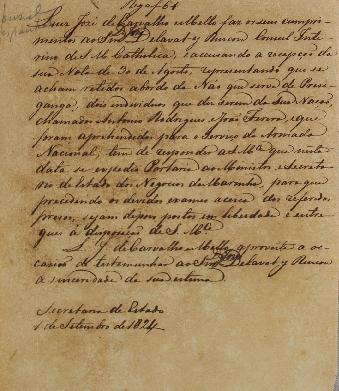 Luiz José de Carvalho e Mello faz os seus cumpri-
mentos ao Snr. Delavat y Rincon Consul Inte-
rino de S. M. Catholica, e accusando a recepção da
sua Nota de 30 de Agosto, representando que se
achão retidos abordo da Náo que serve de Presi-
ganga, dois individuos que dis serem da Sua Nação,
chamados Antonio Rodrigues e João Ferro, e que
forão aprehendidos para o Serviço da Armada
Nacional; tem de responder a S. Mce. que nesta
data se expedio Portaria ao Ministro e Secreta-
rio de Estado dos Negocios da Marinha, para que
precedendo os devidos exames acerca dos referidos
prezos, sejam depois postos em liberdade e entre-
gues á disposição de S. Mce.
L. J. de Carvalho e Mello aproveita a oc-
casião de testemunhar ao Snr. Delavat y Rincon
a sinceridade da sua estima
Secretaria de Estado
1 de Setembro de 1824